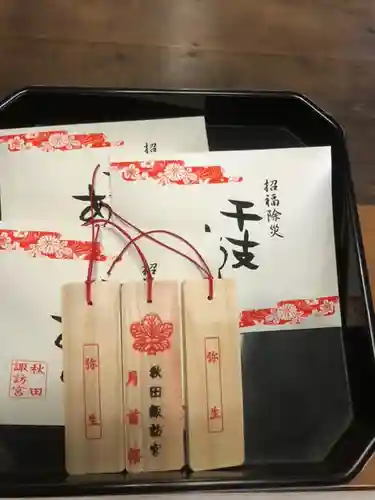 招
あ
招福除災
干支
招
秋田
諏訪宮
弥生
月首
秋田諏訪宮
弥生